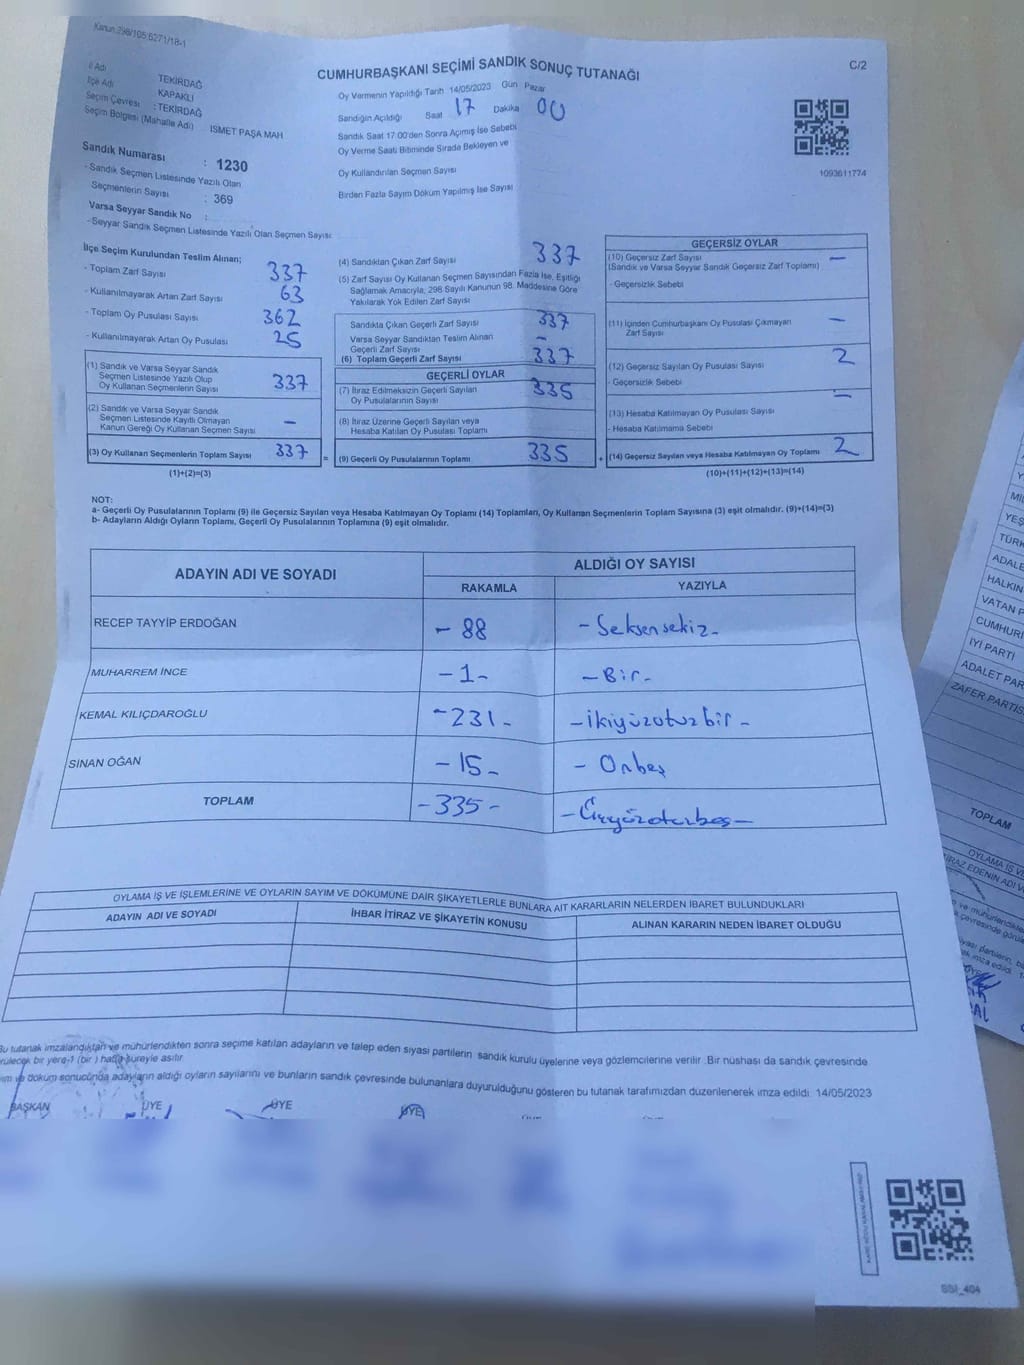 Kanun:298/105;6271/18-1
CUMHURBAŞKANI SEÇİMİ SANDIK SONUÇ TUTANAĞI
C/2
İl Adı TEKİRDAĞ
İlçe Adı KAPAKLI
Seçim Çevresi : TEKİRDAĞ
Seçim Bölgesi (Mahalle Adı) İSMET PAŞA MAH
Oy Vermenin Yapıldığı Tarih 14/05/2023 Gün Pazar
Sandığın Açıldığı Saat 17 Dakika 00
Sandık Saat 17:00'den Sonra Açılmış İse Sebebi
Oy Verme Saati Bitiminde Sırada Bekleyen ve
Oy Kullandırılan Seçmen Sayısı
Birden Fazla Sayım Döküm Yapılmış İse Sayısı
1093611774
Sandık Numarası : 1230
- Sandık Seçmen Listesinde Yazılı Olan
Seçmenlerin Sayısı : 369
Varsa Seyyar Sandık No :
- Seyyar Sandık Seçmen Listesinde Yazılı Olan Seçmen Sayısı:
İlçe Seçim Kurulundan Teslim Alınan;
- Toplam Zarf Sayısı 337
- Kullanılmayarak Artan Zarf Sayısı 63
- Toplam Oy Pusulası Sayısı 362
- Kullanılmayarak Artan Oy Pusulası 25
(1) Sandık ve Varsa Seyyar Sandık
Seçmen Listesinde Yazılı Olup
Oy Kullanan Seçmenlerin Sayısı 337
(2) Sandık ve Varsa Seyyar Sandık
Seçmen Listesinde Kayıtlı Olmayan
Kanun Gereği Oy Kullanan Seçmen Sayısı –
(3) Oy Kullanan Seçmenlerin Toplam Sayısı 337 =
(1)+(2)=(3)
(4) Sandıktan Çıkan Zarf Sayısı 337
(5) Zarf Sayısı Oy Kullanan Seçmen Sayısından Fazla İse, Eşitliği
Sağlamak Amacıyla, 298 Sayılı Kanunun 98. Maddesine Göre
Yakılarak Yok Edilen Zarf Sayısı
Sandıkta Çıkan Geçerli Zarf Sayısı 337
Varsa Seyyar Sandıktan Teslim Alınan
Geçerli Zarf Sayısı –
(6) Toplam Geçerli Zarf Sayısı 337
GEÇERLİ OYLAR
(7) İtiraz Edilmeksizin Geçerli Sayılan
Oy Pusulalarının Sayısı 335
(8) İtiraz Üzerine Geçerli Sayılan veya
Hesaba Katılan Oy Pusulası Toplamı
(9) Geçerli Oy Pusulalarının Toplamı 335 +
GEÇERSİZ OYLAR
(10) Geçersiz Zarf Sayısı –
(Sandık ve Varsa Seyyar Sandık Geçersiz Zarf Toplamı)
- Geçersizlik Sebebi
(11) İçinden Cumhurbaşkanı Oy Pusulası Çıkmayan
Zarf Sayısı –
(12) Geçersiz Sayılan Oy Pusulası Sayısı 2
- Geçersizlik Sebebi
(13) Hesaba Katılmayan Oy Pusulası Sayısı
- Hesaba Katılmama Sebebi
(14) Geçersiz Sayılan veya Hesaba Katılmayan Oy Toplamı 2
(10)+(11)+(12)+(13)=(14)
NOT:
a- Geçerli Oy Pusulalarının Toplamı (9) ile Geçersiz Sayılan veya Hesaba Katılmayan Oy Toplamı (14) Toplamları, Oy Kullanan Seçmenlerin Toplam Sayısına (3) eşit olmalıdır. (9)+(14)=(3)
b- Adayların Aldığı Oyların Toplamı, Geçerli Oy Pusulalarının Toplamına (9) eşit olmalıdır.
ADAYIN ADI VE SOYADI
ALDIĞI OY SAYISI
RAKAMLA YAZIYLA
RECEP TAYYİP ERDOĞAN - 88 - Seksensekiz -
MUHARREM İNCE - 1 - - Bir -
KEMAL KILIÇDAROĞLU - 231 - - İkiyüzotuzbir -
SİNAN OĞAN - 15 - - Onbeş
TOPLAM - 335 - - Üçyüzotuzbeş -
OYLAMA İŞ VE İŞLEMLERİNE VE OYLARIN SAYIM VE DÖKÜMÜNE DAİR ŞİKAYETLERLE BUNLARA AİT KARARLARIN NELERDEN İBARET BULUNDUKLARI
ADAYIN ADI VE SOYADI İHBAR İTİRAZ VE ŞİKAYETİN KONUSU ALINAN KARARIN NEDEN İBARET OLDUĞU
Bu tutanak imzalandıktan ve mühürlendikten sonra seçime katılan adayların ve talep eden siyasi partilerin sandık kurulu üyelerine veya gözlemcilerine verilir. Bir nüshası da sandık çevresinde
bir yere 1 (bir) hafta süreyle asılır
ve döküm sonucunda adayların aldığı oyların sayılarını ve bunların sandık çevresinde bulunanlara duyurulduğunu gösteren bu tutanak tarafımızdan düzenlenerek imza edildi. 14/05/2023
BAŞKAN ÜYE ÜYE ÜYE
SSİ_404
YEŞ
TÜRK
ADALE
HALKIN
VATAN P
CUMHURİ
İYİ PARTİ
ADALET PAR
ZAFER PARTİS
TOPLAM
OYLAMA İŞ VE